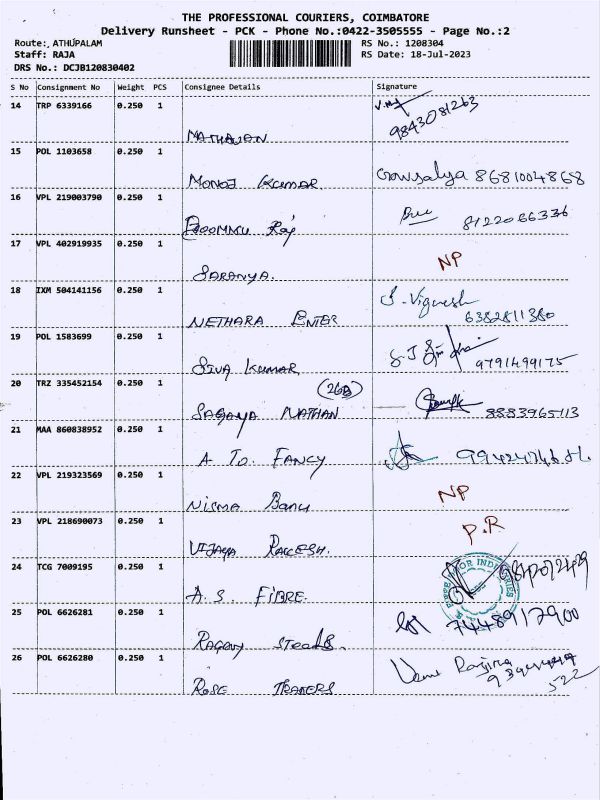 THE PROFESSIONAL COURIERS, COIMBATORE
Delivery Runsheet - PCK - Phone No.:0422-3505555 - Page No.:2
Route: ATHUPALAM RS No.: 1208304
Staff: RAJA RS Date: 18-Jul-2023
DRS No.: DCJB120830402
S No Consignment No Weight PCS Consignee Details Signature
14 TRP 6339166 0.250 1
9843081263
MATHAJAN
15 POL 1103658 0.250 1
MONOJ KUMAR Gowsalya 8681004868
16 VPL 219003790 0.250 1
Raj 8122066336
17 VPL 402919935 0.250 1
NP
SARANYA.
18 IXM 504141156 0.250 1
S. Vignesh
NETHARA ENTER 6382811380
19 POL 1583699 0.250 1
SIVA KUMAR 9791499175
20 TRZ 335452154 0.250 1
(26B)
SAGAYA NATHAN 8883965113
21 MAA 860838952 0.250 1
A TO FANCY
22 VPL 219323569 0.250 1
NP
NISMA BANU
23 VPL 218690073 0.250 1
P.R
VIJAYA RAKESH.
24 TCG 7009195 0.250 1
A.S. FIBRE
25 POL 6626281 0.250 1
7448917900
26 POL 6626280 0.250 1
ROSE TRADERS
522